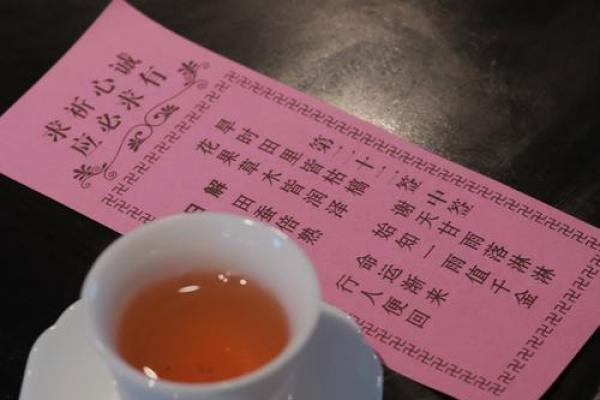 诚心祈求
有求必应
第二十二签 中签
旱时田里皆枯槁 谢天甘雨落淋淋
花果草木皆润泽 始知一雨值千金
解 田蚕倍熟 命运渐来
曰 行人便回